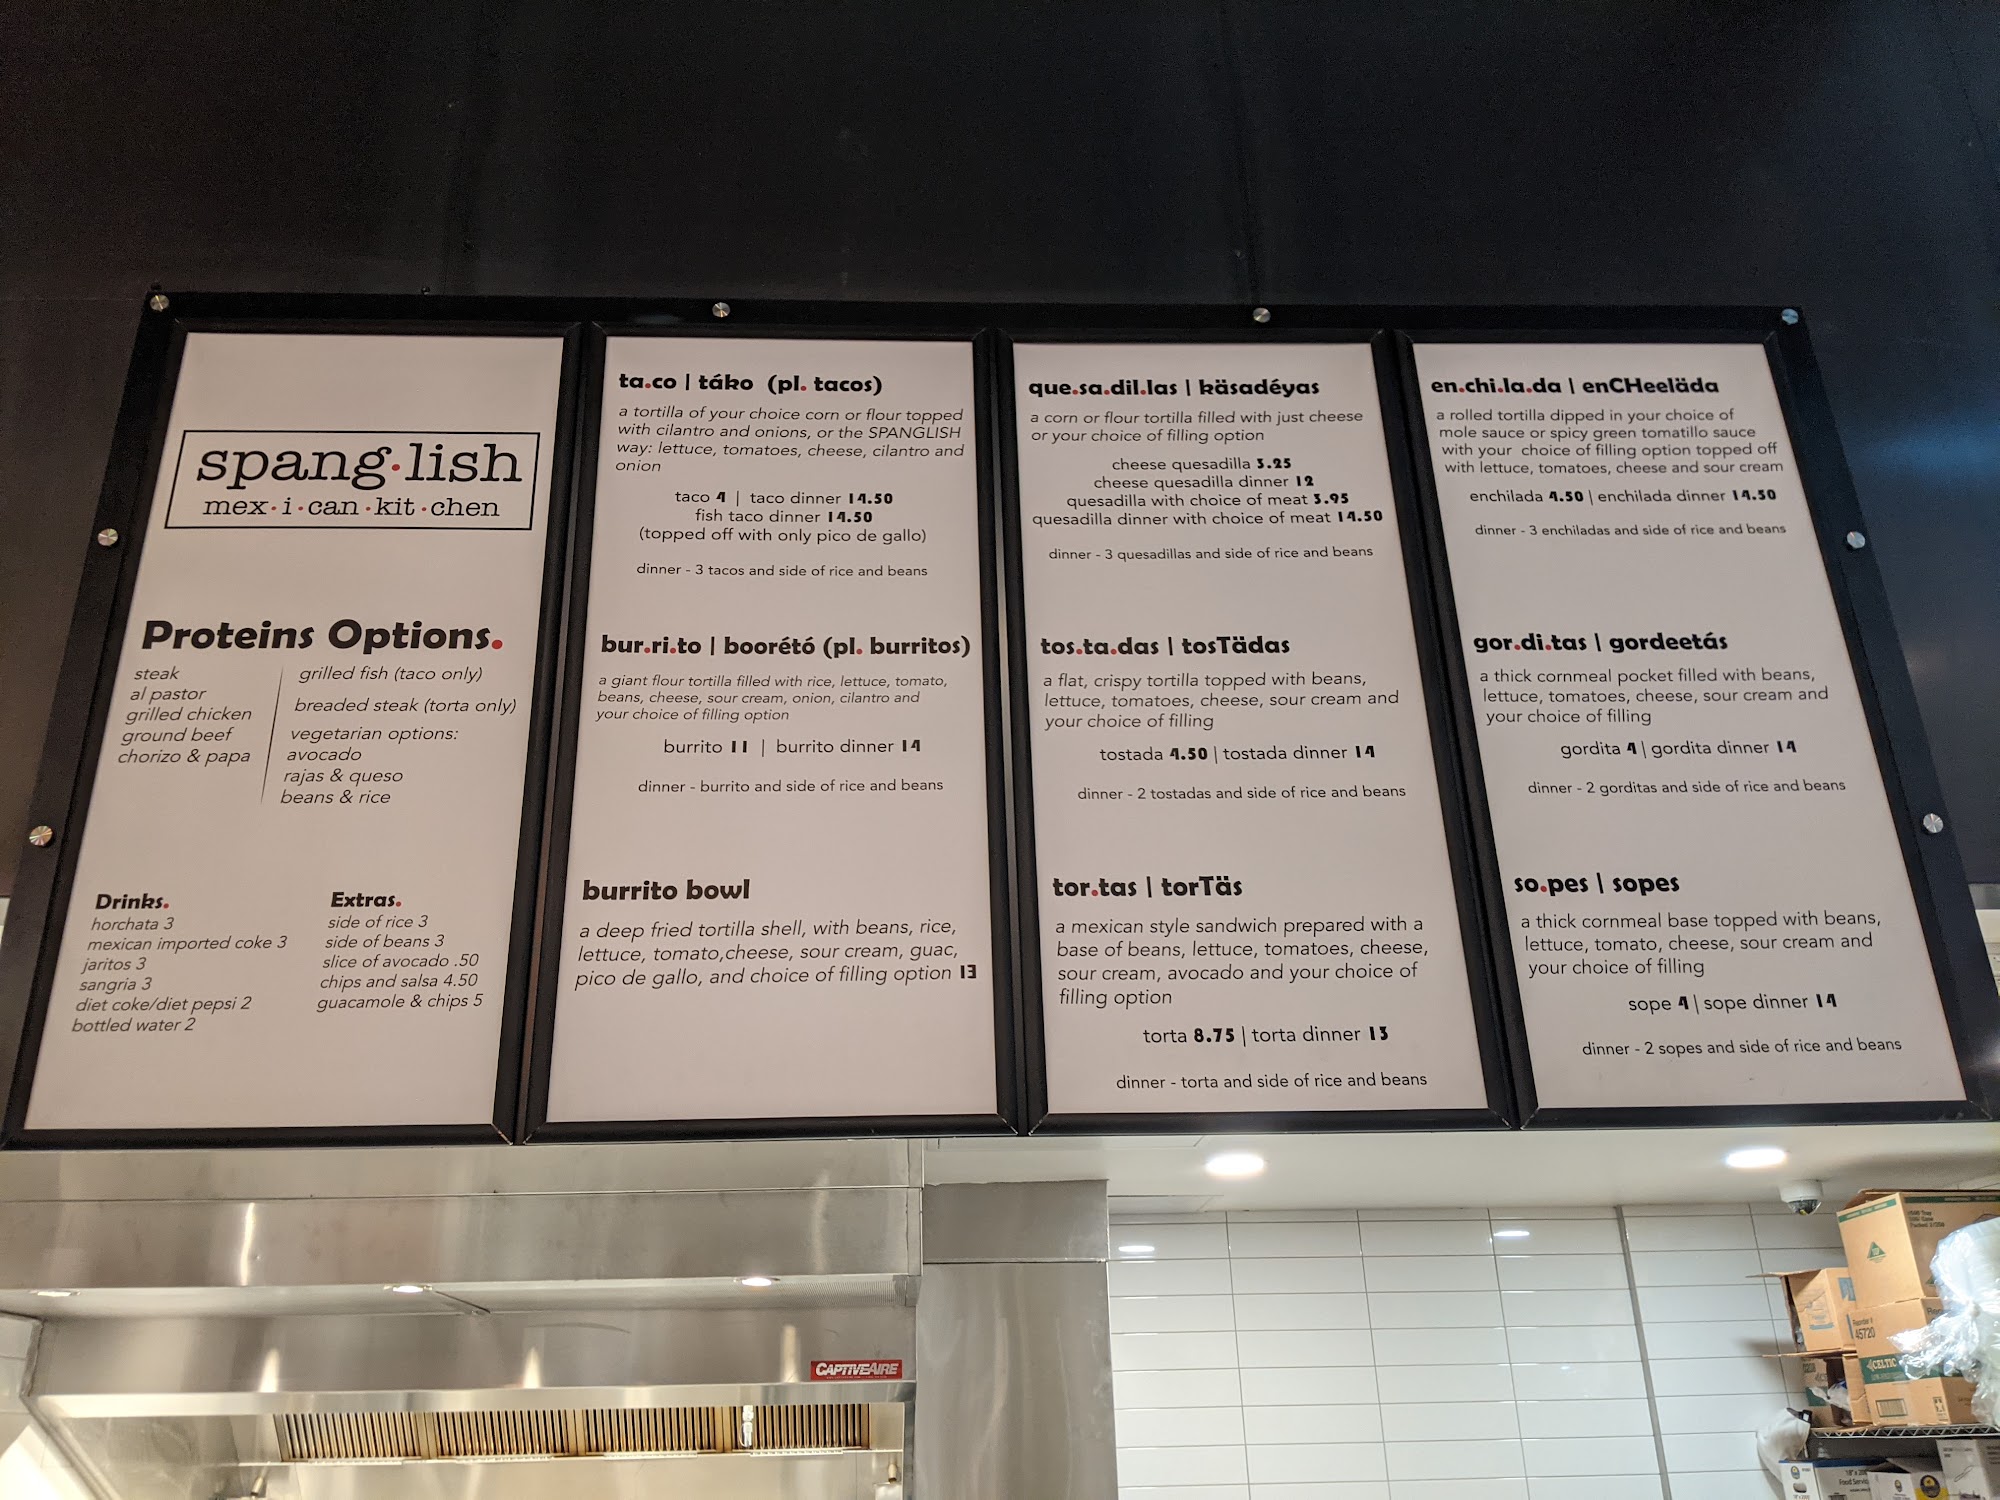 spang·lish
mex·i·can·kit·chen
Proteins Options.
steak
al pastor
grilled chicken
ground beef
chorizo & papa
grilled fish (taco only)
breaded steak (torta only)
vegetarian options:
avocado
rajas & queso
beans & rice
Drinks.
horchata 3
mexican imported coke 3
jaritos 3
sangria 3
diet coke/diet pepsi 2
bottled water 2
Extras.
side of rice 3
side of beans 3
slice of avocado .50
chips and salsa 4.50
guacamole & chips 5
ta.co | táko (pl. tacos)
a tortilla of your choice corn or flour topped
with cilantro and onions, or the SPANGLISH
way: lettuce, tomatoes, cheese, cilantro and
onion
taco 4 | taco dinner 14.50
fish taco dinner 14.50
(topped off with only pico de gallo)
dinner - 3 tacos and side of rice and beans
bur.ri.to | boorétó (pl. burritos)
a giant flour tortilla filled with rice, lettuce, tomato,
beans, cheese, sour cream, onion, cilantro and
your choice of filling option
burrito 11 | burrito dinner 14
dinner - burrito and side of rice and beans
burrito bowl
a deep fried tortilla shell, with beans, rice,
lettuce, tomato,cheese, sour cream, guac,
pico de gallo, and choice of filling option 13
que.sa.dil.las | käsadéyas
a corn or flour tortilla filled with just cheese
or your choice of filling option
cheese quesadilla 3.25
cheese quesadilla dinner 12
quesadilla with choice of meat 3.95
quesadilla dinner with choice of meat 14.50
dinner - 3 quesadillas and side of rice and beans
tos.ta.das | tosTädas
a flat, crispy tortilla topped with beans,
lettuce, tomatoes, cheese, sour cream and
your choice of filling
tostada 4.50 | tostada dinner 14
dinner - 2 tostadas and side of rice and beans
tor.tas | torTäs
a mexican style sandwich prepared with a
base of beans, lettuce, tomatoes, cheese,
sour cream, avocado and your choice of
filling option
torta 8.75 | torta dinner 13
dinner - torta and side of rice and beans
en.chi.la.da | enCHeeläda
a rolled tortilla dipped in your choice of
mole sauce or spicy green tomatillo sauce
with your choice of filling option topped off
with lettuce, tomatoes, cheese and sour cream
enchilada 4.50 | enchilada dinner 14.50
dinner - 3 enchiladas and side of rice and beans
gor.di.tas | gordeetás
a thick cornmeal pocket filled with beans,
lettuce, tomatoes, cheese, sour cream and
your choice of filling
gordita 4 | gordita dinner 14
dinner - 2 gorditas and side of rice and beans
so.pes | sopes
a thick cornmeal base topped with beans,
lettuce, tomato, cheese, sour cream and
your choice of filling
sope 4 | sope dinner 14
dinner - 2 sopes and side of rice and beans
CAPTIVEAIRE
45720
CELTIC